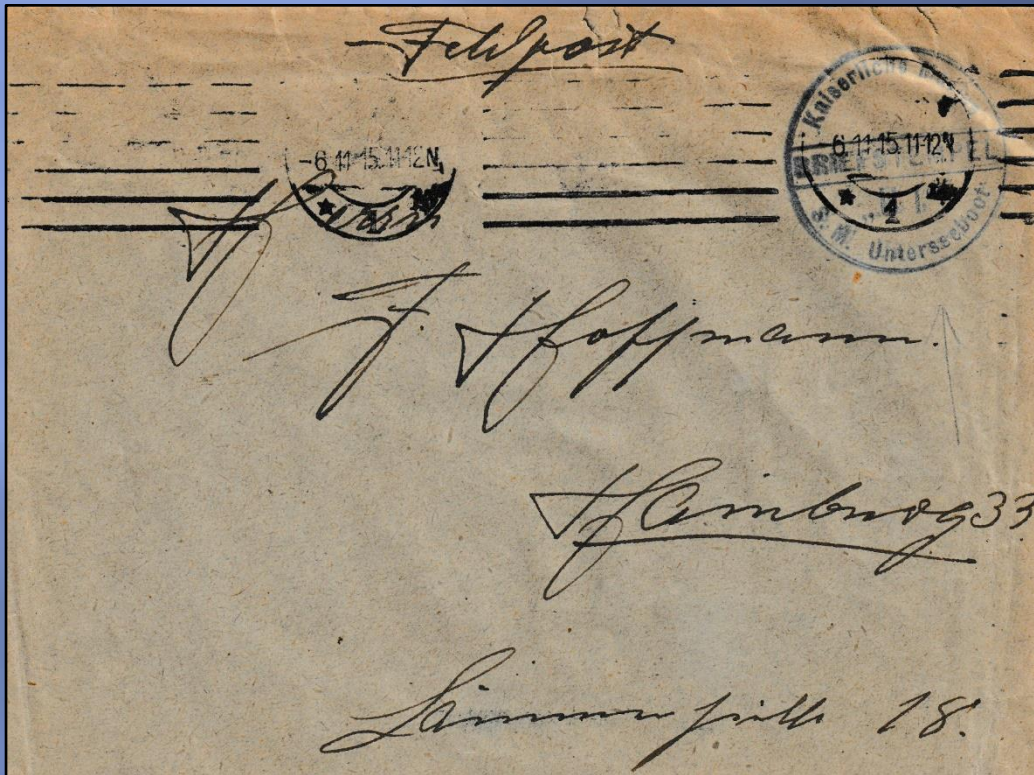 Feldpost
-6.11.15.11-12N.
1
Kaiserliche
6.11.15.11-12N
BRIEFSTEMPEL
1
S. M. Unterseeboot
Herrn
F. Hoffmann.
Hamburg 33
Lämmersieth 18.